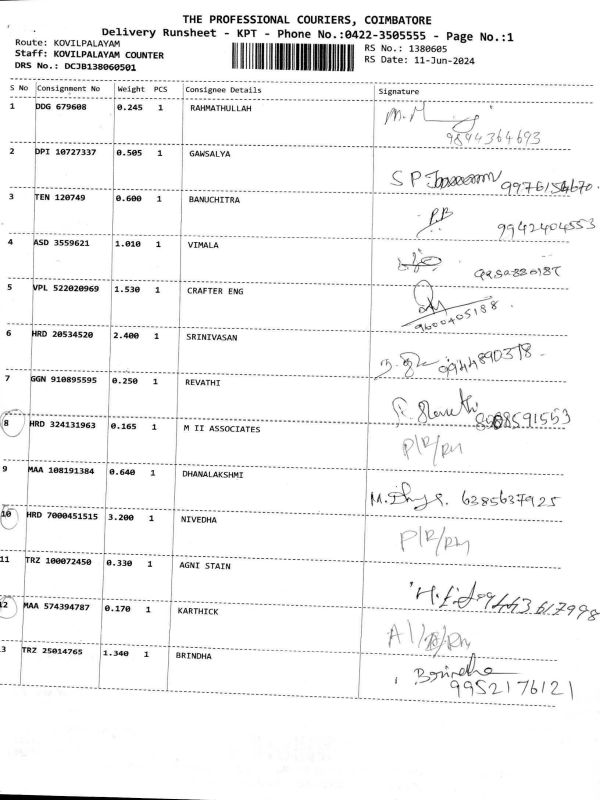 THE PROFESSIONAL COURIERS, COIMBATORE
Delivery Runsheet - KPT - Phone No.:0422-3505555 - Page No.:1
Route: KOVILPALAYAM
Staff: KOVILPALAYAM COUNTER
DRS No.: DCJB138060501
RS No.: 1380605
RS Date: 11-Jun-2024
S No Consignment No Weight PCS Consignee Details Signature
1 DDG 679608 0.245 1 RAHMATHULLAH
9894364693
2 DPI 10727337 0.505 1 GAWSALYA
S P 
3 TEN 120749 0.600 1 BANUCHITRA
P.B 9942404553
4 ASD 3559621 1.010 1 VIMALA
5 VPL 522020969 1.530 1 CRAFTER ENG
9600405188
6 HRD 20534520 2.400 1 SRINIVASAN
9944890378
7 GGN 910895595 0.250 1 REVATHI
8 HRD 324131963 0.165 1 M II ASSOCIATES
P/R/RM
9 MAA 108191384 0.640 1 DHANALAKSHMI
6385637925
10 HRD 7000451515 3.200 1 NIVEDHA
P/R/RM
11 TRZ 100072450 0.330 1 AGNI STAIN
9443617998
12 MAA 574394787 0.170 1 KARTHICK
3 TRZ 25014765 1.340 1 BRINDHA
Brindha
9952176121